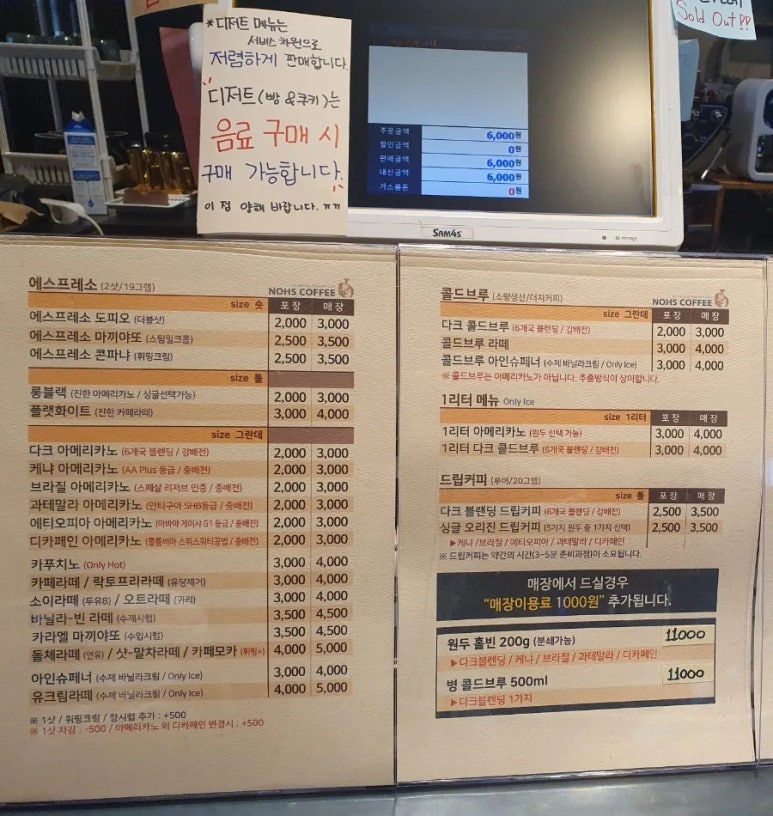 *디저트 메뉴는
서비스 차원으로
저렴하게 판매합니다.
디저트(빵 & 쿠키)는
음료 구매 시
구매 가능합니다.
이 점 양해 바랍니다. ㅠㅠ
주문금액 6,000원
할인금액 0원
판매금액 6,000원
내신금액 6,000원
거스름돈 0원
SAM4S
Sold Out!!
에스프레소 (2샷/19그램)
NOHS COFFEE
size 숏 포장 매장
에스프레소 도피오 (더블샷) 2,000 3,000
에스프레소 마끼야또 (스팀밀크폼) 2,500 3,500
에스프레소 콘파냐 (휘핑크림) 2,500 3,500
size 톨
롱블랙 (진한 아메리카노 / 싱글선택가능) 2,000 3,000
플랫화이트 (진한 카페라떼) 3,000 4,000
size 그란데
다크 아메리카노 (6개국 블렌딩 / 강배전) 2,000 3,000
케냐 아메리카노 (AA Plus 등급 / 중배전) 2,000 3,000
브라질 아메리카노 (스페샬 리저브 인증 / 중배전) 2,000 3,000
과테말라 아메리카노 (안티구아 SHB등급 / 중배전) 2,000 3,000
에티오피아 아메리카노 (아바야 게이샤 G1 등급 / 중배전) 2,000 3,000
디카페인 아메리카노 (콜롬비아 스위스워터공법 / 중배전) 2,000 3,000
카푸치노 (Only Hot) 3,000 4,000
카페라떼 / 락토프리라떼 (유당제거) 3,000 4,000
소이라떼 (두유B) / 오트라떼 (귀리) 3,000 4,000
바닐라-빈 라떼 (수제시럽) 3,500 4,500
카라멜 마끼야또 (수입시럽) 3,500 4,500
돌체라떼 (연유) / 샷-말차라떼 / 카페모카 (휘핑x) 4,000 5,000
아인슈페너 (수제 바닐라크림 / Only Ice) 3,000 4,000
유크림라떼 (수제 바닐라크림 / Only Ice) 4,000 5,000
※ 1샷 / 휘핑크림 / 향시럽 추가 : +500
※ 1샷 차감 : -500 / 아메리카노 외 디카페인 변경시 : +500
콜드브루 (소량생산/더치커피)
NOHS COFFEE
size 그란데 포장 매장
다크 콜드브루 (6개국 블렌딩 / 강배전) 2,000 3,000
콜드브루 라떼 3,000 4,000
콜드브루 아인슈페너 (수제 바닐라크림 / Only Ice) 3,000 4,000
※ 콜드브루는 아메리카노가 아닙니다. 추출방식이 상이합니다.
1리터 메뉴 Only Ice
size 1리터 포장 매장
1리터 아메리카노 (원두 선택 가능) 3,000 4,000
1리터 다크 콜드브루 (6개국 블렌딩 / 강배전) 3,000 4,000
드립커피 (푸어/20그램)
size 톨 포장 매장
다크 블랜딩 드립커피 (6개국 블렌딩 / 강배전) 2,500 3,500
싱글 오리진 드립커피 (5가지 원두 중 1가지 선택) 2,500 3,500
▶케냐 / 브라질 / 에티오피아 / 과테말라 / 디카페인
※ 드립커피는 약간의 시간(3~5분 준비과정)이 소요됩니다.
매장에서 드실경우
“매장이용료 1000원” 추가됩니다.
원두 홀빈 200g (분쇄가능) 11000
▶다크블렌딩 / 케냐 / 브라질 / 과테말라 / 디카페인
병 콜드브루 500ml 11000
▶다크블렌딩 1가지